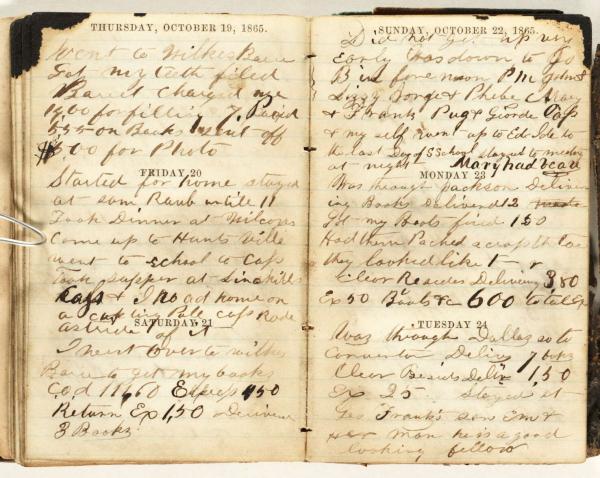 THURSDAY, OCTOBER 19, 1865.
Went to Wilkes Barre
Got my teeth filed
Barret Charged me
for filling 7, Paid
5,55 on Backs went off
$ 00 for Photo
FRIDAY 20
Started for home stayed
at Sam Raub untill 11
Took Dinner at Wilcoxes
Come up to Hunts Ville
went to school to Caps
Took supper at
Caps & I Road home on
a Pole Caps Rode
astride of it
SATURDAY 21
I went over to wilkes
Barre to get my books
C.O.D Express 450
Return Ex 1,50 Deliverd
3 Books
SUNDAY, OCTOBER 22, 1865.
Did not get up very
Early Was down to Jo
B in fore noon P.M. John &
Lizzy George & Phebe C Mary
& Frank Pug & George Caps
& my self went up to Ed Ide to
the last Day of S School stayed to meeting
at night Mary had
MONDAY 23
Was through Jackson Deliver
ing Books Deliverd 12
Got my Boots fixed 1 50
Had them Patched across the toe
they looked like
Clear Besides Delivering 3,50
Ex 50 Boots &c 600 total Ex
TUESDAY 24
Was through Dallas on to
Deliv 7 books
Clear Besides Deliv 1,50
Ex 25. Stayed at
Geo Frank's son Em &
her man he is a good
looking fellow